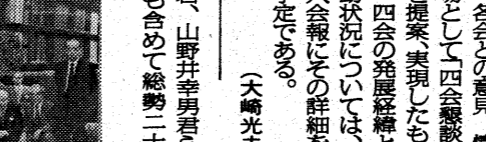 名会との意見
として「四会懇談
提案、実現したも
四会の発展経緯と
状況については、
会報にその詳細を
定である。
(大崎光
、山野井幸男君
も含めて総勢二十